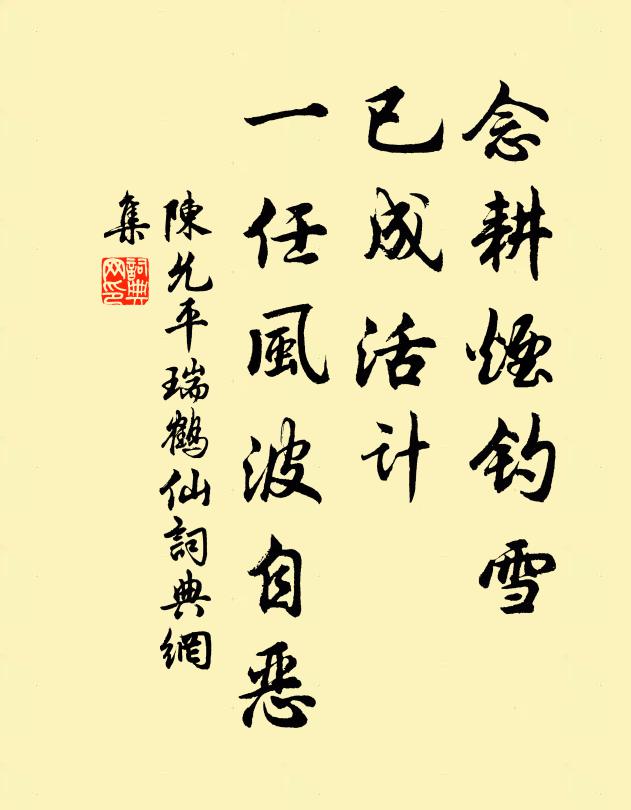 念耕煙钓雪
已成活计
一任風波自恶
陳允平瑞鶴仙詞典網
集
詞典网印